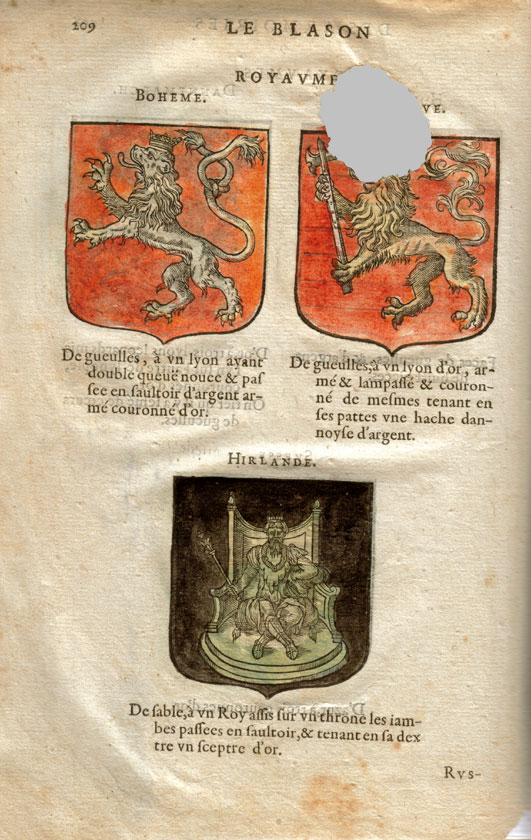 209
LE BLASON
ROYAVME
BOHEME.
De gueulles, à vn lyon ayant
double queuë nouee & paſ
ſee en ſaultoir d'argent ar-
mé couronné d'or.
VE.
De gueulles,à vn lyon d'or, ar-
mé & lampaſſé & couron-
né de meſmes tenant en
ſes pattes vne hache dan-
noyſe d'argent.
HIRLANDE.
De ſable,à vn Roy aſſis ſur vn throne les iam-
bes paſſees en ſaultoir,& tenant en ſa dex
tre vn ſceptre d'or.
RVS-